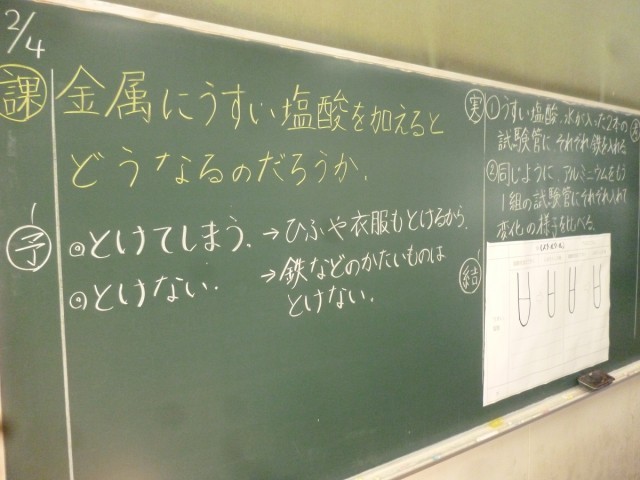 2/4
課
金属にうすい塩酸を加えると
どうなるのだろうか.
予
◎とけてしまう. →ひふや衣服もとけるから.
◎とけない. →鉄などのかたいものは
とけない.
実
①うすい塩酸、水が入った2本の
試験管に それぞれ鉄を入れる
②同じように、アルミニウムをもう
1組の試験管にそれぞれ入れて
変化の様子を比べる.
結